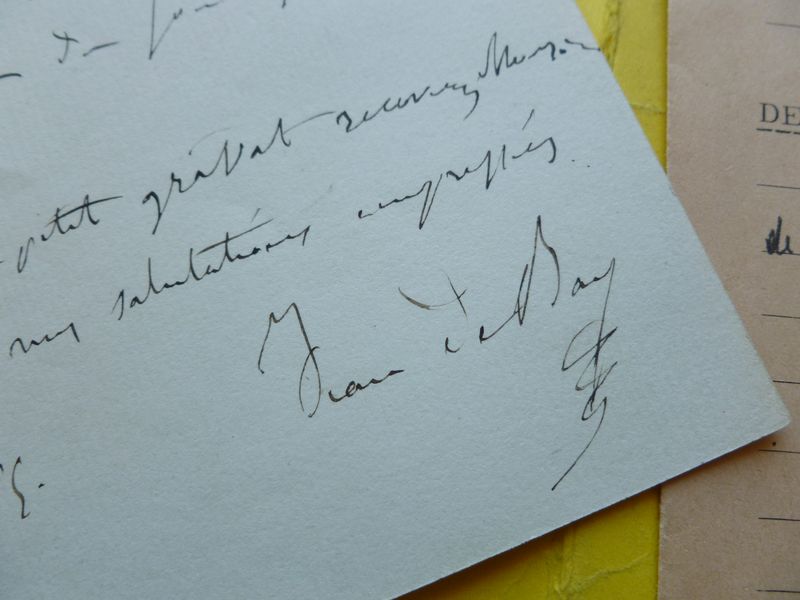 petit grattat recevez Monsieur
mes salutations empressées.
Jean De Bay
DE
de